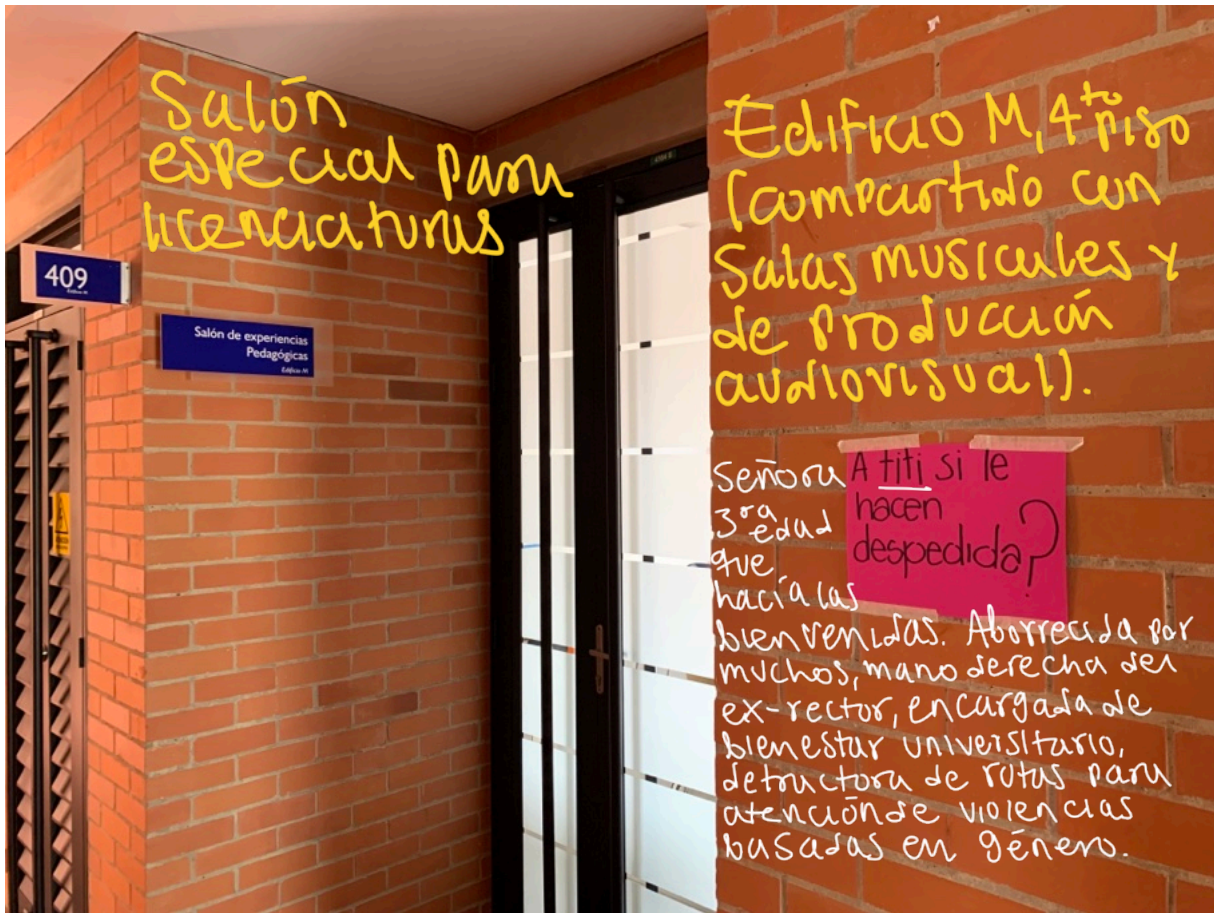 Salón
especial para
licenciaturas
409
Edificio M
Salón de experiencias
Pedagógicas
Edificio M
Edificio M, 4to piso
(compartido con
Salas musicales y
de producción
audiovisual).
A titi si le
hacen
despedida?
Señora
3ra edad
que
hacía las
bienvenidas. Aborrecida por
muchos, mano derecha del
ex-rector, encargada de
bienestar universitario,
detractora de rutas para
atención de violencias
basadas en género.